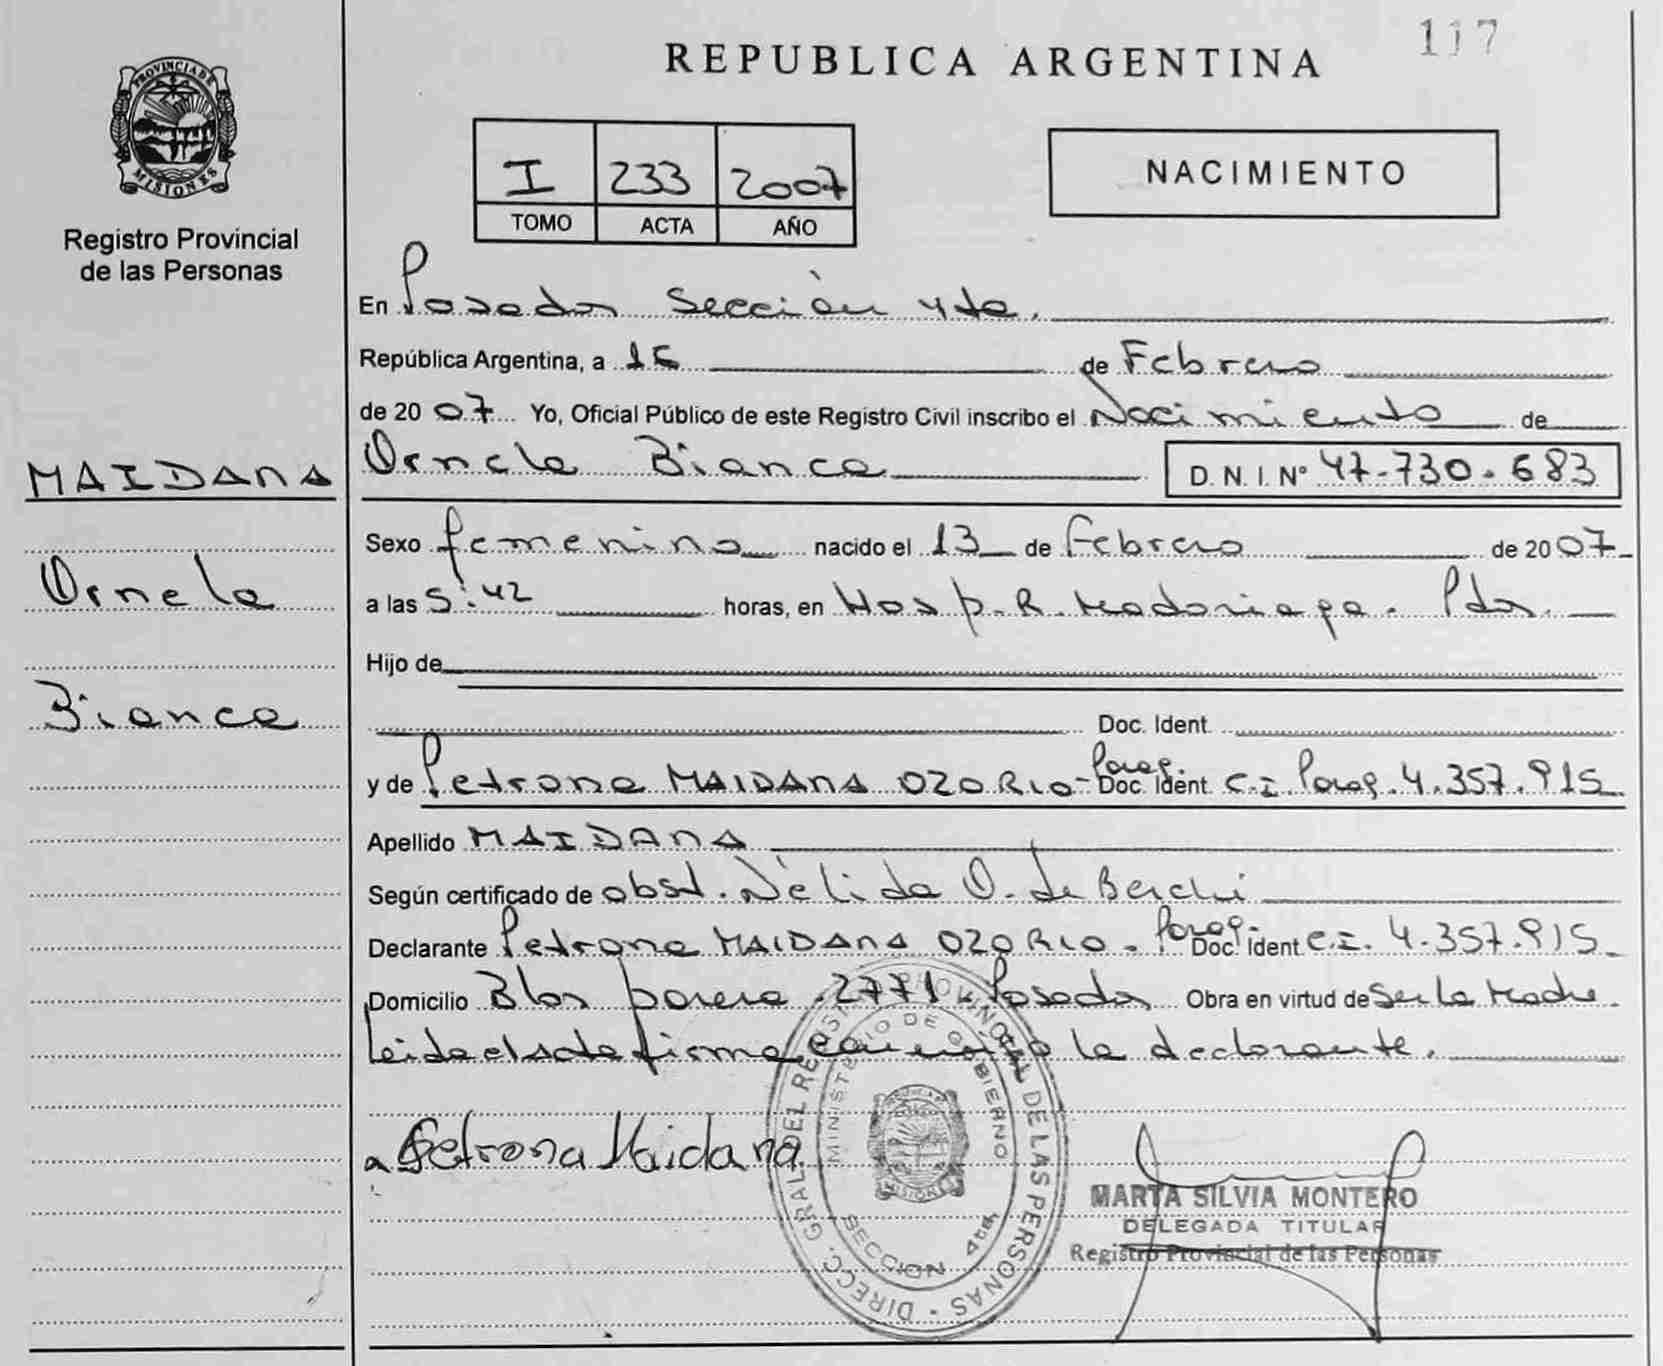 117
REPUBLICA ARGENTINA
PROVINCIA DE
MISIONES
Registro Provincial
de las Personas
I 233 2007
TOMO ACTA AÑO
NACIMIENTO
En Posadas Sección 4ta.
República Argentina, a 16 de Febrero
de 20 07 Yo, Oficial Público de este Registro Civil inscribo el Nacimiento de
MAIDANA
Ornela Bianca D. N. I. Nº 47.730.683
Sexo femenino nacido el 13 de Febrero de 20 07
Ornela
a las 5:42 horas, en Hosp. R. Madariaga. Pdas.
Hijo de
Bianca
Doc. Ident.
y de Petrona MAIDANA OZORIO - Parag. Doc. Ident. C.I. Parag. 4.357.915
Apellido MAIDANA
Según certificado de obst. Nélida O. de
Declarante Petrona MAIDANA OZORIO. Parag. Doc. Ident C.I. 4.357.915
Domicilio Blas parera 2771 Posadas Obra en virtud de Ser la Madre
Leida el acta firma conmigo la declarante.
Petrona Maidana
DIRECC. GRAL. DEL REGISTRO PROVINCIAL DE LAS PERSONAS
MINISTERIO DE GOBIERNO
MISIONES
SECCION 4ta.
MARTA SILVIA MONTERO
DELEGADA TITULAR
Registro Provincial de las Personas